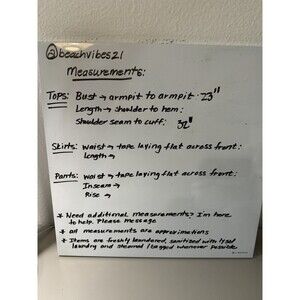 @beachvibes21
Measurements:
Tops: Bust → armpit to armpit: 23"
Length → shoulder to hem:
Shoulder seam to cuff: 32"
Skirts: waist → tape laying flat across front:
length →
Pants: waist → tape laying flat across front:
Inseam →
Rise →
* Need additional measurements? I'm here
to help. Please message
* all measurements are approximations
* Items are freshly laundered, sanitized with lysol
laundry and steamed / tagged whenever possible